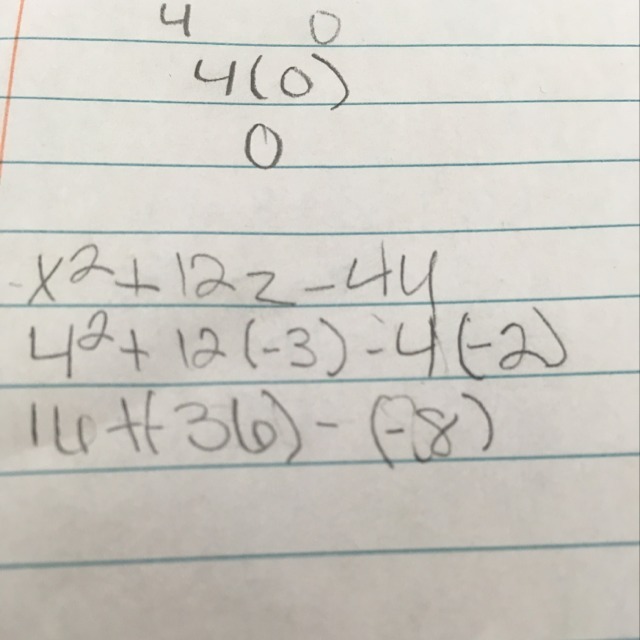 4 0
4(0)
0
x²+12z-4y
4²+12(-3)-4(-2)
16+(-36)-(-8)